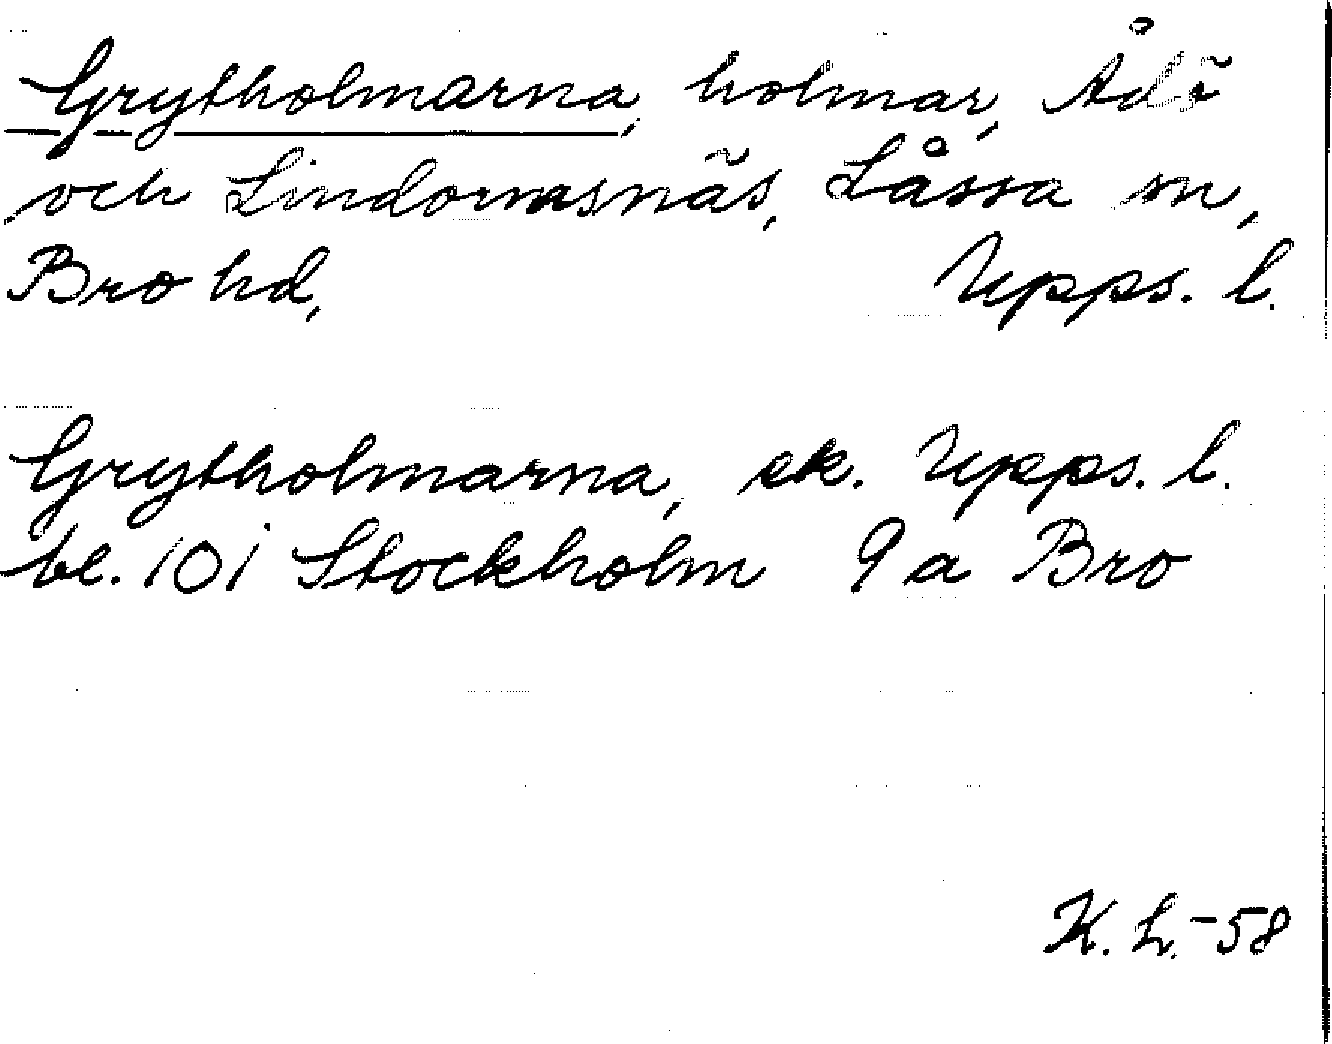 Grytholmarna, holmar, Ådö
och Lindormsnäs, Låssa sn,
Bro hd, Upps. l.
Grytholmarna, ek. Upps. l.
bl. 101 Stockholm 9a Bro
K. L. -58